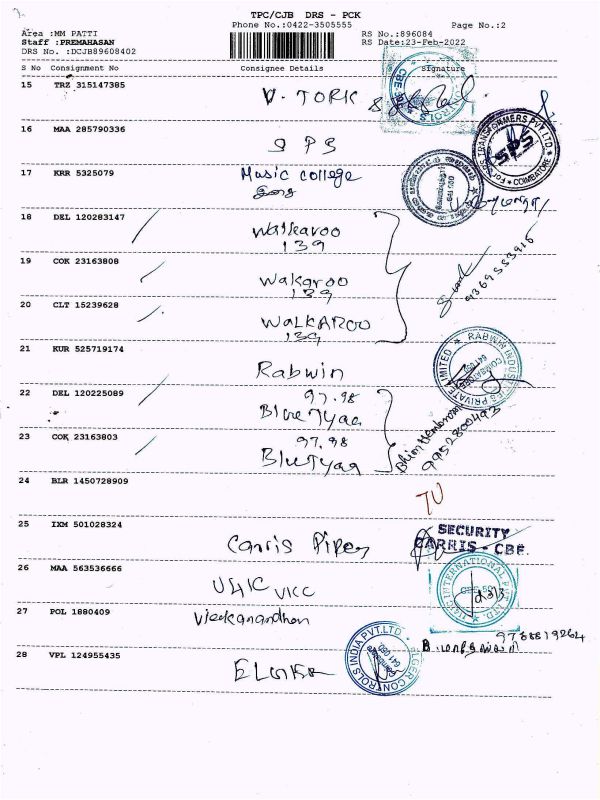 TPC/CJB DRS - PCK
Phone No.:0422-3505555
Page No.:2
Area :MM PATTI
Staff :PREMAHASAN
DRS No. :DCJB89608402
RS No.:896084
RS Date:23-Feb-2022
S No Consignment No Consignee Details Signature
15 TRZ 315147385
V. TORK
16 MAA 285790336
S P S
TRANSFORMERS PVT. LTD.
SPS
COIMBATORE
17 KRR 5325079
Music college
இசை
18 DEL 120283147
Walkaroo
139
19 COK 23163808
Wakaroo
139
20 CLT 15239628
WALKAROO
139
21 KUR 525719174
Rabwin
RABWIN INDUSTRIES PRIVATE LIMITED
22 DEL 120225089
97.98
23 COK 23163803
97.98
9952800493
24 BLR 1450728909
25 IXM 501028324
SECURITY
CARRIS - CBE.
26 MAA 563536666
VICC
INTERNATIONAL PVT. LTD.
27 POL 1880409
Vivekanandhan
9788819264
28 VPL 124955435
CONTROLS INDIA PVT. LTD.